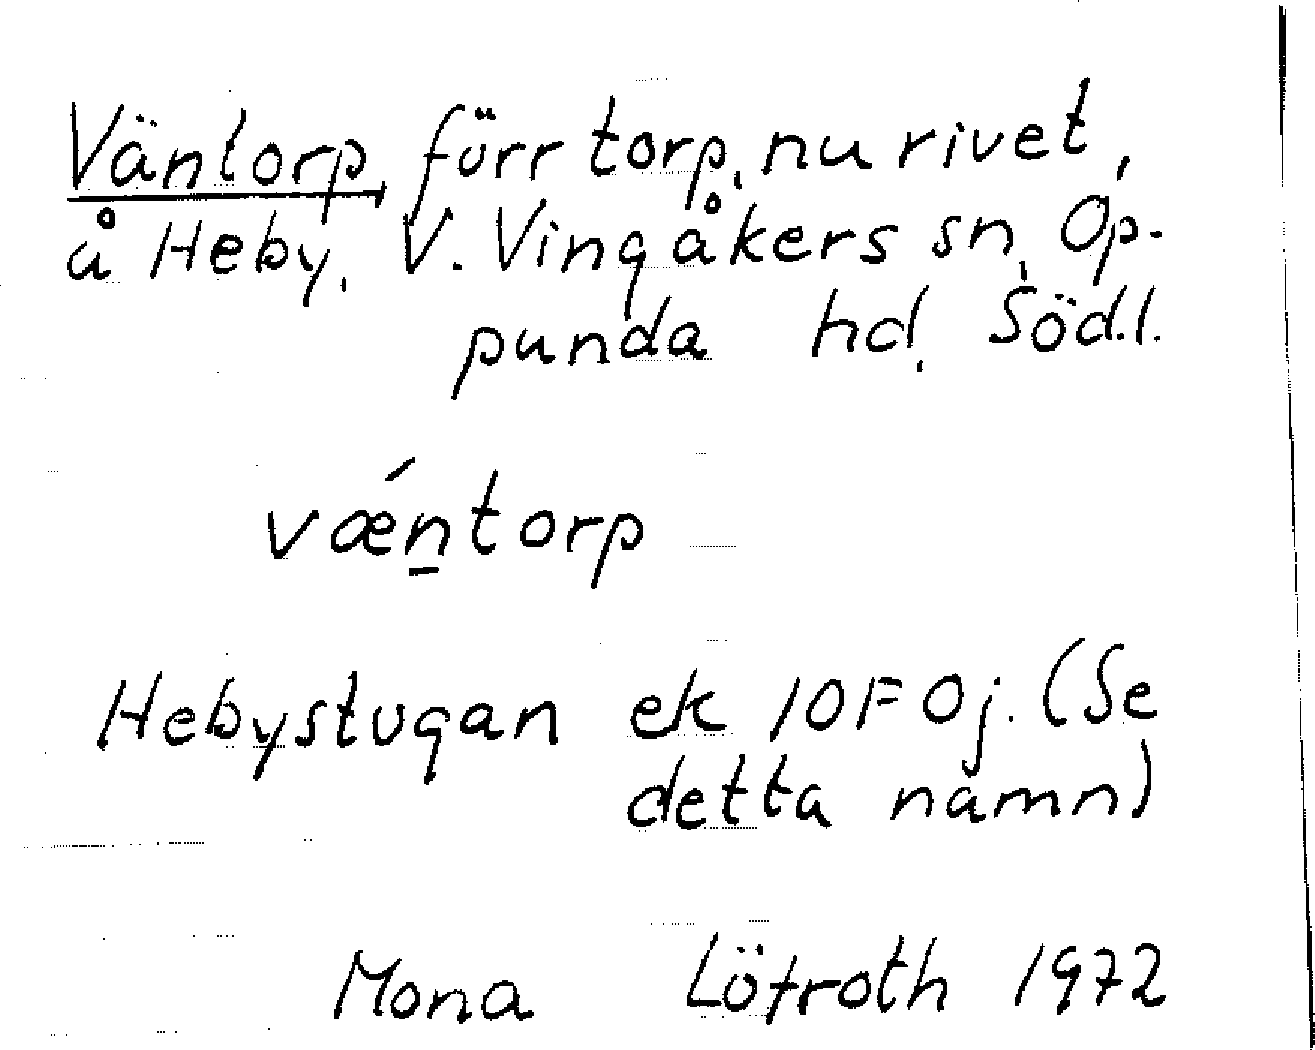 Väntorp, förr torp, nu rivet,
å Heby, V. Vingåkers sn, Op-
punda hd, Södl.
vǽn̲torp
Hebystugan ek 10F 0j. (Se
detta namn)
Mona Löfroth 1972